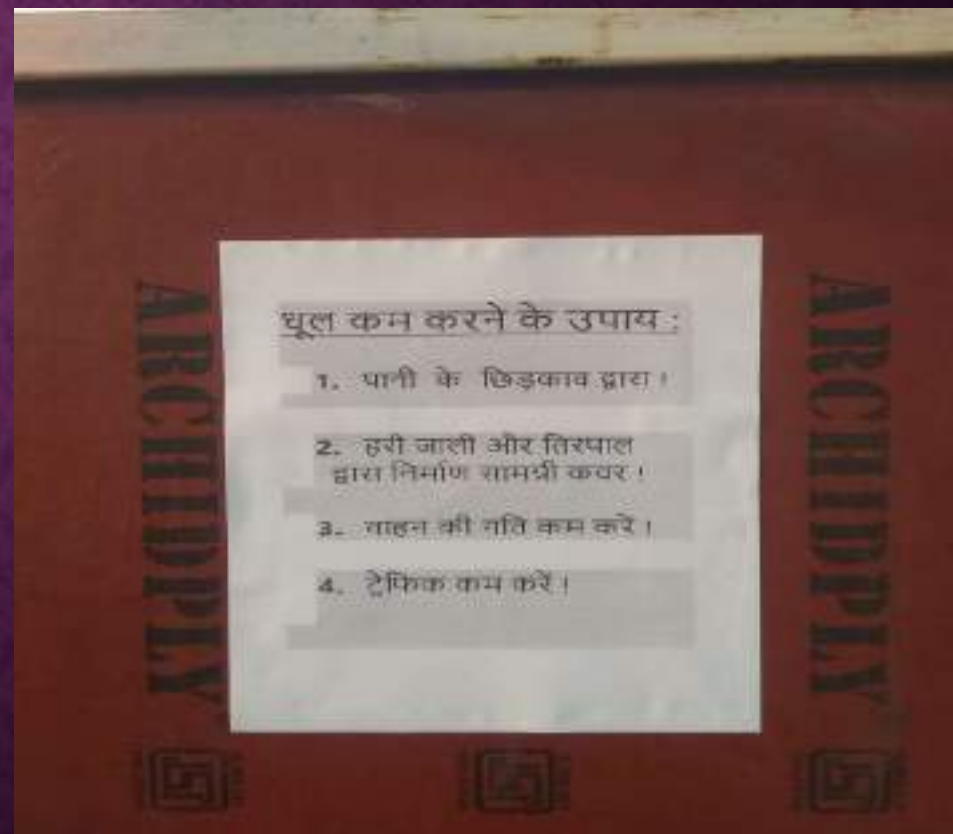 ARCHIDPLY
धूल कम करने के उपाय :
1. पानी के छिड़काव द्वारा ।
2. हरी जाली और तिरपाल
द्वारा निर्माण सामग्री कवर ।
3. वाहन की गति कम करें ।
4. ट्रेफिक कम करें ।
ARCHIDPLY